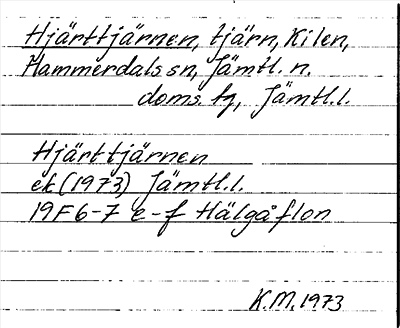 Hjärttjärnen, tjärn, Kilen,
Hammerdals sn, Jämtl. n.
doms. tg, Jämtl.l.
Hjärttjärnen
ek (1973) Jämtl.l.
19F6-7 e-f Hälgåflon
K.M. 1973